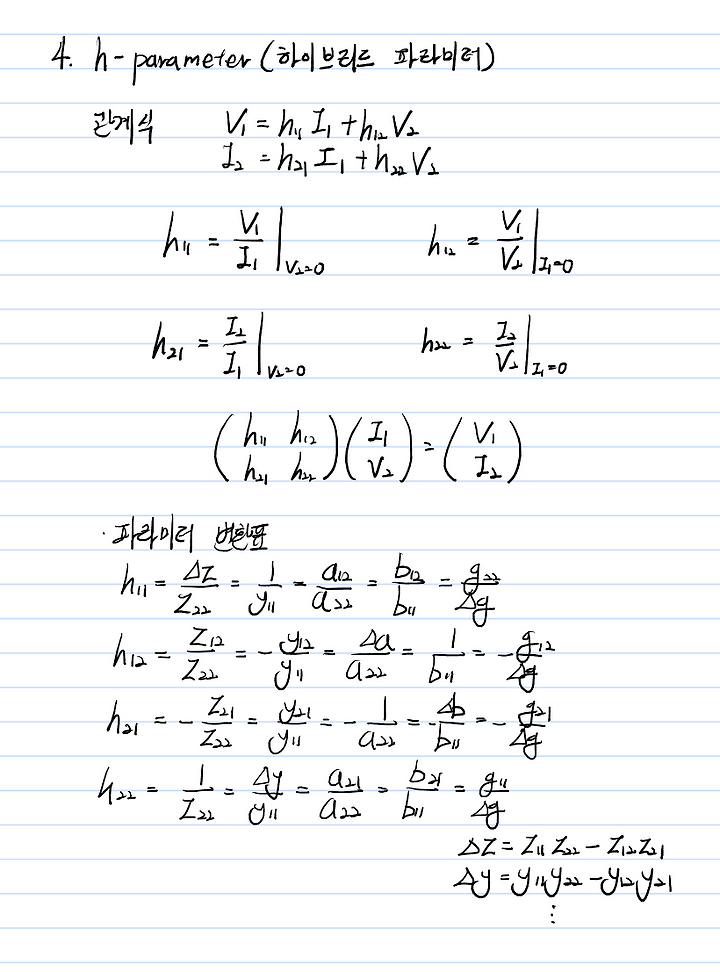 4. h-parameter (하이브리드 파라미터)
관계식 V₁ = h₁₁ I₁ + h₁₂ V₂
I₂ = h₂₁ I₁ + h₂₂ V₂
h₁₁ = V₁/I₁ |V₂=0 h₁₂ = V₁/V₂ |I₁=0
h₂₁ = I₂/I₁ |V₂=0 h₂₂ = I₂/V₂ |I₁=0
(h₁₁ h₁₂; h₂₁ h₂₂)(I₁; V₂) = (V₁; I₂)
· 파라미터 변환표
h₁₁ = ΔZ/Z₂₂ = 1/y₁₁ = a₁₂/a₂₂ = b₁₂/b₁₁ = g₂₂/Δg
h₁₂ = Z₁₂/Z₂₂ = -y₁₂/y₁₁ = Δa/a₂₂ = 1/b₁₁ = -g₁₂/Δg
h₂₁ = -Z₂₁/Z₂₂ = y₂₁/y₁₁ = -1/a₂₂ = -Δb/b₁₁ = -g₂₁/Δg
h₂₂ = 1/Z₂₂ = Δy/y₁₁ = a₂₁/a₂₂ = b₂₁/b₁₁ = g₁₁/Δg
ΔZ = Z₁₁ Z₂₂ - Z₁₂ Z₂₁
Δy = y₁₁ y₂₂ - y₁₂ y₂₁
⋮